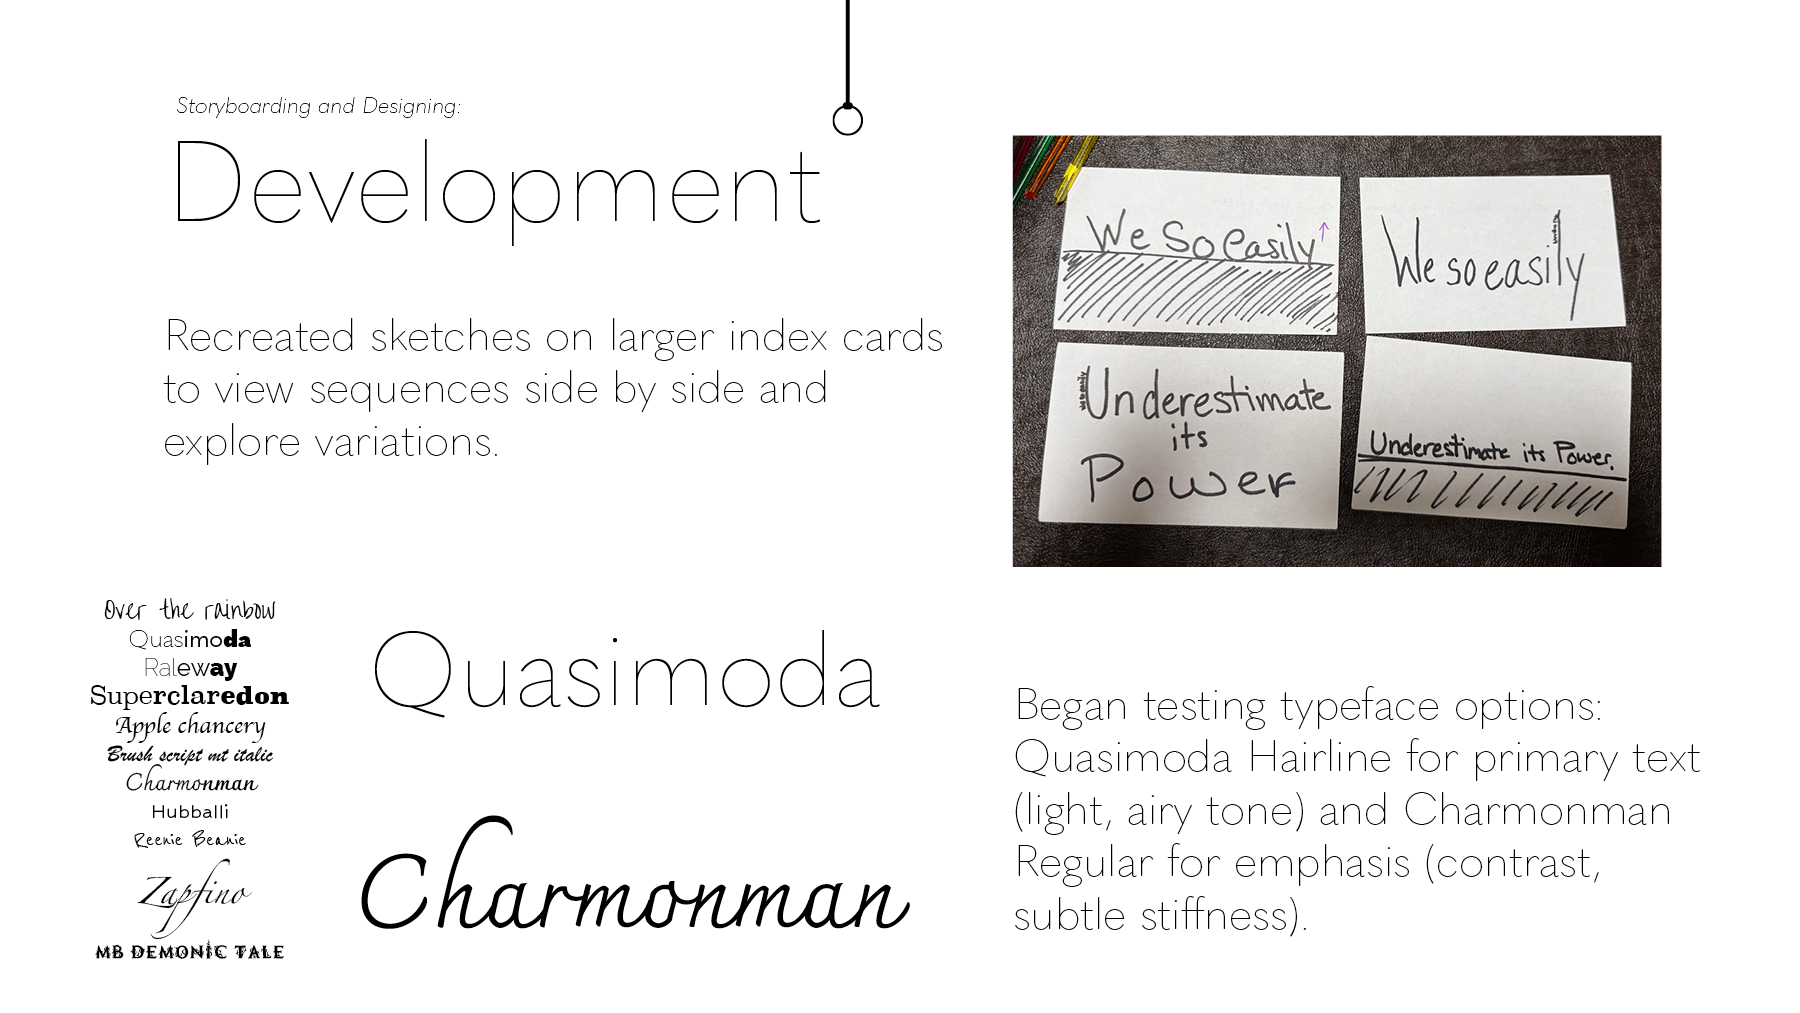 Storyboarding and Designing:
Development
Recreated sketches on larger index cards
to view sequences side by side and
explore variations.
We So easily
We so easily
Underestimate
its
Power
Underestimate its Power.
Over the rainbow
Quasimoda
Raleway
Superclaredon
Apple chancery
Brush script mt italic
Charmonman
Hubballi
Reenie Beanie
Zapfino
MB DEMONIC TALE
Quasimoda
Charmonman
Began testing typeface options:
Quasimoda Hairline for primary text
(light, airy tone) and Charmonman
Regular for emphasis (contrast,
subtle stiffness).